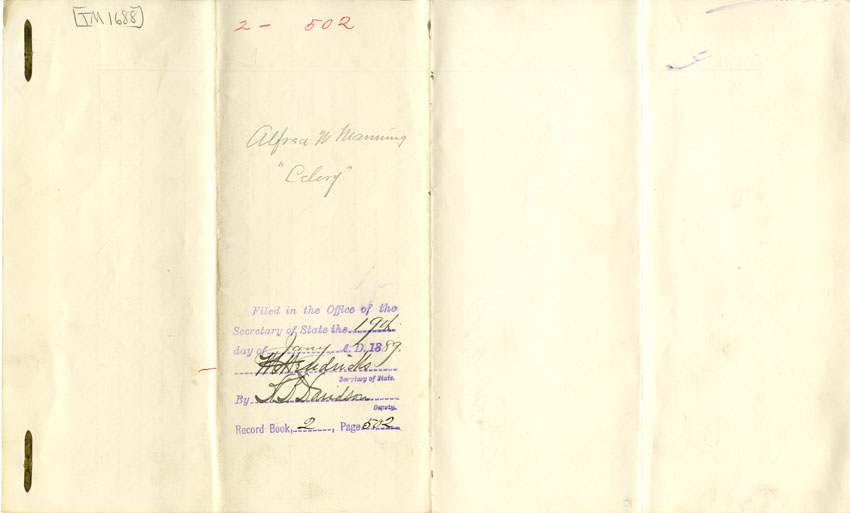 [TM 1688]
2 - 502
Alfred W Manning
"Celery"
Filed in the Office of the
Secretary of State the 19th
day of Jany A.D. 1889.
W C Hendricks
Secretary of State.
By L B Davidson
Deputy.
Record Book, 2, Page 502